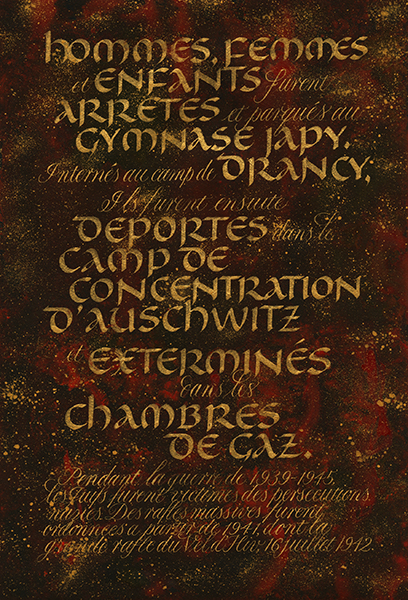 hommes, femmes
et enfants furent
arrêtés et parqués au
gymnase japy.
Internés au camp de drancy,
Ils furent ensuite
déportés dans le
camp de
concentration
d'auschwitz
et exterminés
dans les
chambres
de gaz.
Pendant la guerre de 1939-1945,
les juifs furent victimes des persecutions
nazies. Des rafles massives furent
ordonnées à partir de 1941, dont la
grande rafle du Vel d'Hiv, 16 juillet 1942.